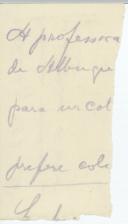 A professora
de Albuque
para un col
prefere cola
E